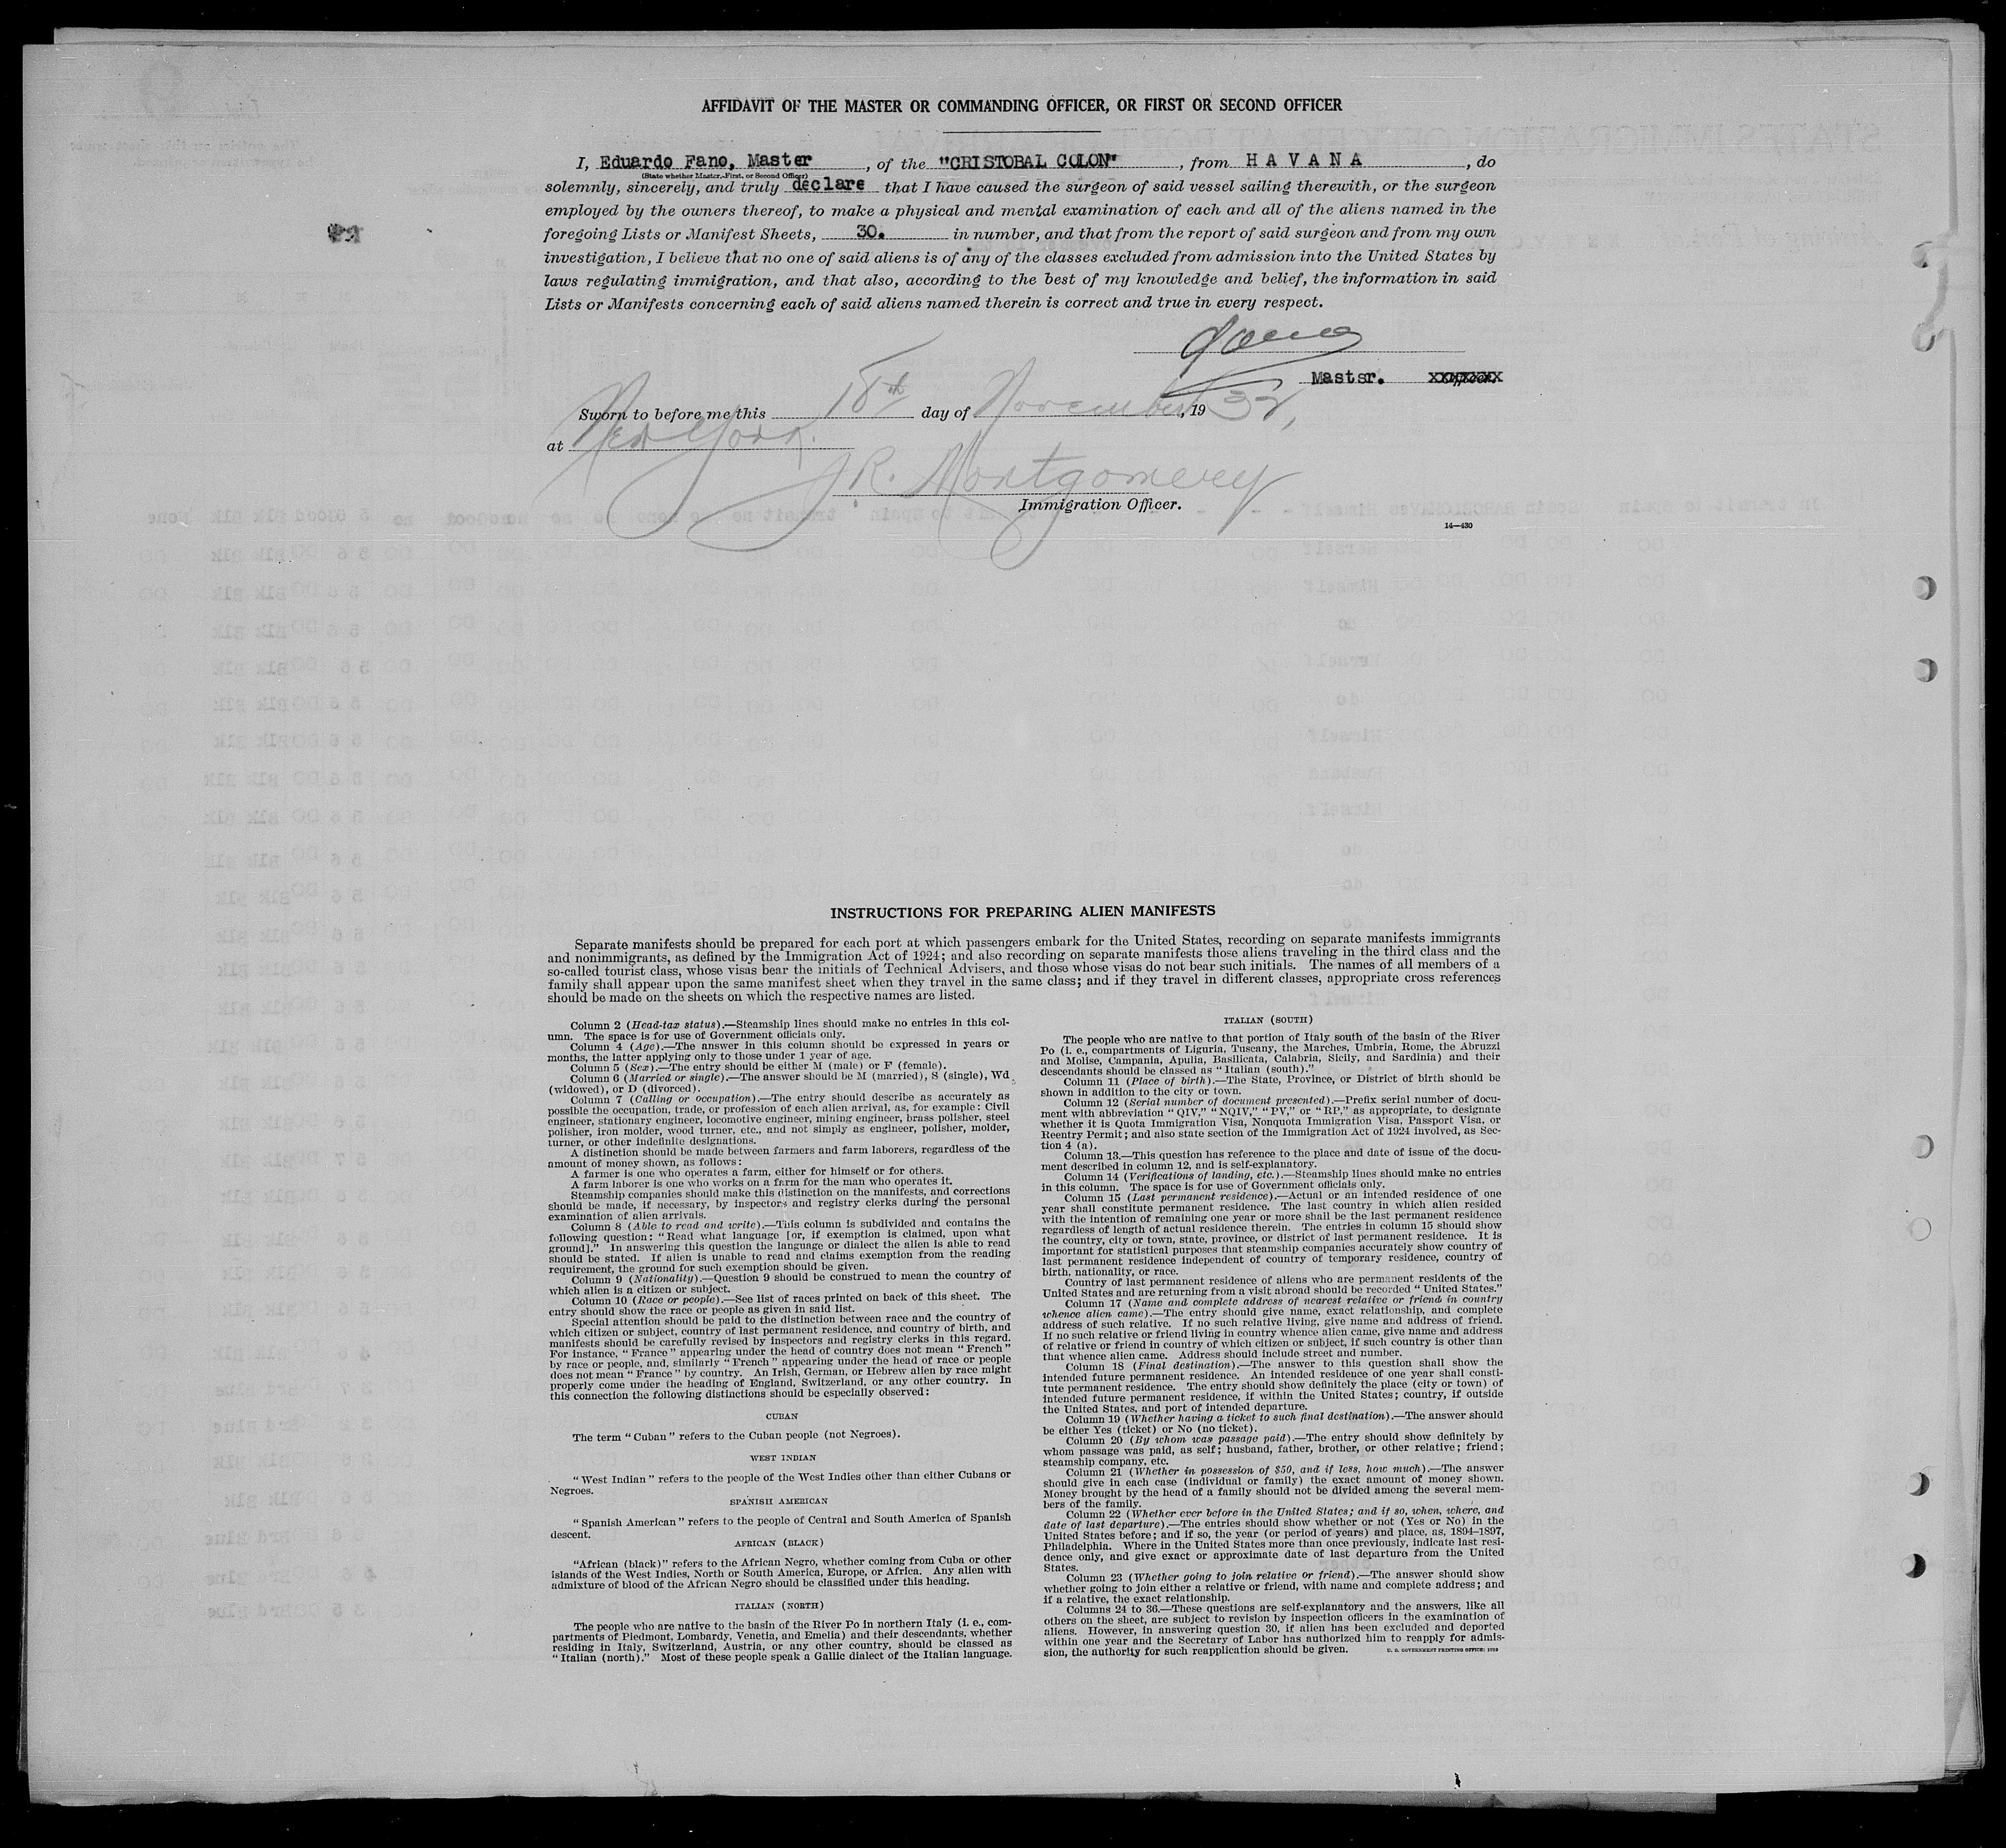 AFFIDAVIT OF THE MASTER OR COMMANDING OFFICER, OR FIRST OR SECOND OFFICER
I, Eduardo Fano, Master, of the "CRISTOBAL COLON", from H A V A N A, do
(State whether Master, First, or Second Officer)
solemnly, sincerely, and truly declare that I have caused the surgeon of said vessel sailing therewith, or the surgeon
employed by the owners thereof, to make a physical and mental examination of each and all of the aliens named in the
foregoing Lists or Manifest Sheets, 30. in number, and that from the report of said surgeon and from my own
investigation, I believe that no one of said aliens is of any of the classes excluded from admission into the United States by
laws regulating immigration, and that also, according to the best of my knowledge and belief, the information in said
Lists or Manifests concerning each of said aliens named therein is correct and true in every respect.
Fano
Mastsr. xxxxxxx
Sworn to before me this 18th day of November, 1932,
at New York.
JR. Montgomery
Immigration Officer.
14—430
INSTRUCTIONS FOR PREPARING ALIEN MANIFESTS
Separate manifests should be prepared for each port at which passengers embark for the United States, recording on separate manifests immigrants
and nonimmigrants, as defined by the Immigration Act of 1924; and also recording on separate manifests those aliens traveling in the third class and the
so-called tourist class, whose visas bear the initials of Technical Advisers, and those whose visas do not bear such initials. The names of all members of a
family shall appear upon the same manifest sheet when they travel in the same class; and if they travel in different classes, appropriate cross references
should be made on the sheets on which the respective names are listed.
Column 2 (Head-tax status).—Steamship lines should make no entries in this col-
umn. The space is for use of Government officials only.
Column 4 (Age).—The answer in this column should be expressed in years or
months, the latter applying only to those under 1 year of age.
Column 5 (Sex).—The entry should be either M (male) or F (female).
Column 6 (Married or single).—The answer should be M (married), S (single), Wd
(widowed), or D (divorced).
Column 7 (Calling or occupation).—The entry should describe as accurately as
possible the occupation, trade, or profession of each alien arrival, as, for example: Civil
engineer, stationary engineer, locomotive engineer, mining engineer, brass polisher, steel
polisher, iron molder, wood turner, etc., and not simply as engineer, polisher, molder,
turner, or other indefinite designations.
A distinction should be made between farmers and farm laborers, regardless of the
amount of money shown, as follows:
A farmer is one who operates a farm, either for himself or for others.
A farm laborer is one who works on a farm for the man who operates it.
Steamship companies should make this distinction on the manifests, and corrections
should be made, if necessary, by inspectors and registry clerks during the personal
examination of alien arrivals.
Column 8 (Able to read and write).—This column is subdivided and contains the
following question: "Read what language [or, if exemption is claimed, upon what
ground]." In answering this question the language or dialect the alien is able to read
should be stated. If alien is unable to read and claims exemption from the reading
requirement, the ground for such exemption should be given.
Column 9 (Nationality).—Question 9 should be construed to mean the country of
which alien is a citizen or subject.
Column 10 (Race or people).—See list of races printed on back of this sheet. The
entry should show the race or people as given in said list.
Special attention should be paid to the distinction between race and the country of
which citizen or subject, country of last permanent residence, and country of birth, and
manifests should be carefully revised by inspectors and registry clerks in this regard.
For instance, "France" appearing under the head of country does not mean "French"
by race or people, and, similarly "French" appearing under the head of race or people
does not mean "France" by country. An Irish, German, or Hebrew alien by race might
properly come under the heading of England, Switzerland, or any other country. In
this connection the following distinctions should be especially observed:
CUBAN
The term "Cuban" refers to the Cuban people (not Negroes).
WEST INDIAN
"West Indian" refers to the people of the West Indies other than either Cubans or
Negroes.
SPANISH AMERICAN
"Spanish American" refers to the people of Central and South America of Spanish
descent.
AFRICAN (BLACK)
"African (black)" refers to the African Negro, whether coming from Cuba or other
islands of the West Indies, North or South America, Europe, or Africa. Any alien with
admixture of blood of the African Negro should be classified under this heading.
ITALIAN (NORTH)
The people who are native to the basin of the River Po in northern Italy (i. e., com-
partments of Piedmont, Lombardy, Venetia, and Emelia) and their descendants, whether
residing in Italy, Switzerland, Austria, or any other country, should be classed as
"Italian (north)." Most of these people speak a Gallic dialect of the Italian language.
ITALIAN (SOUTH)
The people who are native to that portion of Italy south of the basin of the River
Po (i. e., compartments of Liguria, Tuscany, the Marches, Umbria, Rome, the Abruzzi
and Molise, Campania, Apulia, Basilicata, Calabria, Sicily, and Sardinia) and their
descendants should be classed as "Italian (south)."
Column 11 (Place of birth).—The State, Province, or District of birth should be
shown in addition to the city or town.
Column 12 (Serial number of document presented).—Prefix serial number of docu-
ment with abbreviation "QIV," "NQIV," "PV," or "RP," as appropriate, to designate
whether it is Quota Immigration Visa, Nonquota Immigration Visa, Passport Visa, or
Reentry Permit; and also state section of the Immigration Act of 1924 involved, as Sec-
tion 4 (a).
Column 13.—This question has reference to the place and date of issue of the docu-
ment described in column 12, and is self-explanatory.
Column 14 (Verifications of landing, etc.).—Steamship lines should make no entries
in this column. The space is for use of Government officials only.
Column 15 (Last permanent residence).—Actual or an intended residence of one
year shall constitute permanent residence. The last country in which alien resided
with the intention of remaining one year or more shall be the last permanent residence
regardless of length of actual residence therein. The entries in column 15 should show
the country, city or town, state, province, or district of last permanent residence. It is
important for statistical purposes that steamship companies accurately show country of
last permanent residence independent of country of temporary residence, country of
birth, nationality, or race.
Country of last permanent residence of aliens who are permanent residents of the
United States and are returning from a visit abroad should be recorded "United States."
Column 17 (Name and complete address of nearest relative or friend in country
whence alien came).—The entry should give name, exact relationship, and complete
address of such relative. If no such relative living, give name and address of friend.
If no such relative or friend living in country whence alien came, give name and address
of relative or friend in country of which citizen or subject, if such country is other than
that whence alien came. Address should include street and number.
Column 18 (Final destination).—The answer to this question shall show the
intended future permanent residence. An intended residence of one year shall consti-
tute permanent residence. The entry should show definitely the place (city or town) of
intended future permanent residence, if within the United States; country, if outside
the United States, and port of intended departure.
Column 19 (Whether having a ticket to such final destination).—The answer should
be either Yes (ticket) or No (no ticket).
Column 20 (By whom was passage paid).—The entry should show definitely by
whom passage was paid, as self; husband, father, brother, or other relative; friend;
steamship company, etc.
Column 21 (Whether in possession of $50, and if less, how much).—The answer
should give in each case (individual or family) the exact amount of money shown.
Money brought by the head of a family should not be divided among the several mem-
bers of the family.
Column 22 (Whether ever before in the United States; and if so, when, where, and
date of last departure).—The entries should show whether or not (Yes or No) in the
United States before; and if so, the year (or period of years) and place, as, 1894–1897,
Philadelphia. Where in the United States more than once previously, indicate last resi-
dence only, and give exact or approximate date of last departure from the United
States.
Column 23 (Whether going to join relative or friend).—The answer should show
whether going to join either a relative or friend, with name and complete address; and
if a relative, the exact relationship.
Columns 24 to 36.—These questions are self-explanatory and the answers, like all
others on the sheet, are subject to revision by inspection officers in the examination of
aliens. However, in answering question 30, if alien has been excluded and deported
within one year and the Secretary of Labor has authorized him to reapply for admis-
sion, the authority for such reapplication should be given.
U. S. GOVERNMENT PRINTING OFFICE: